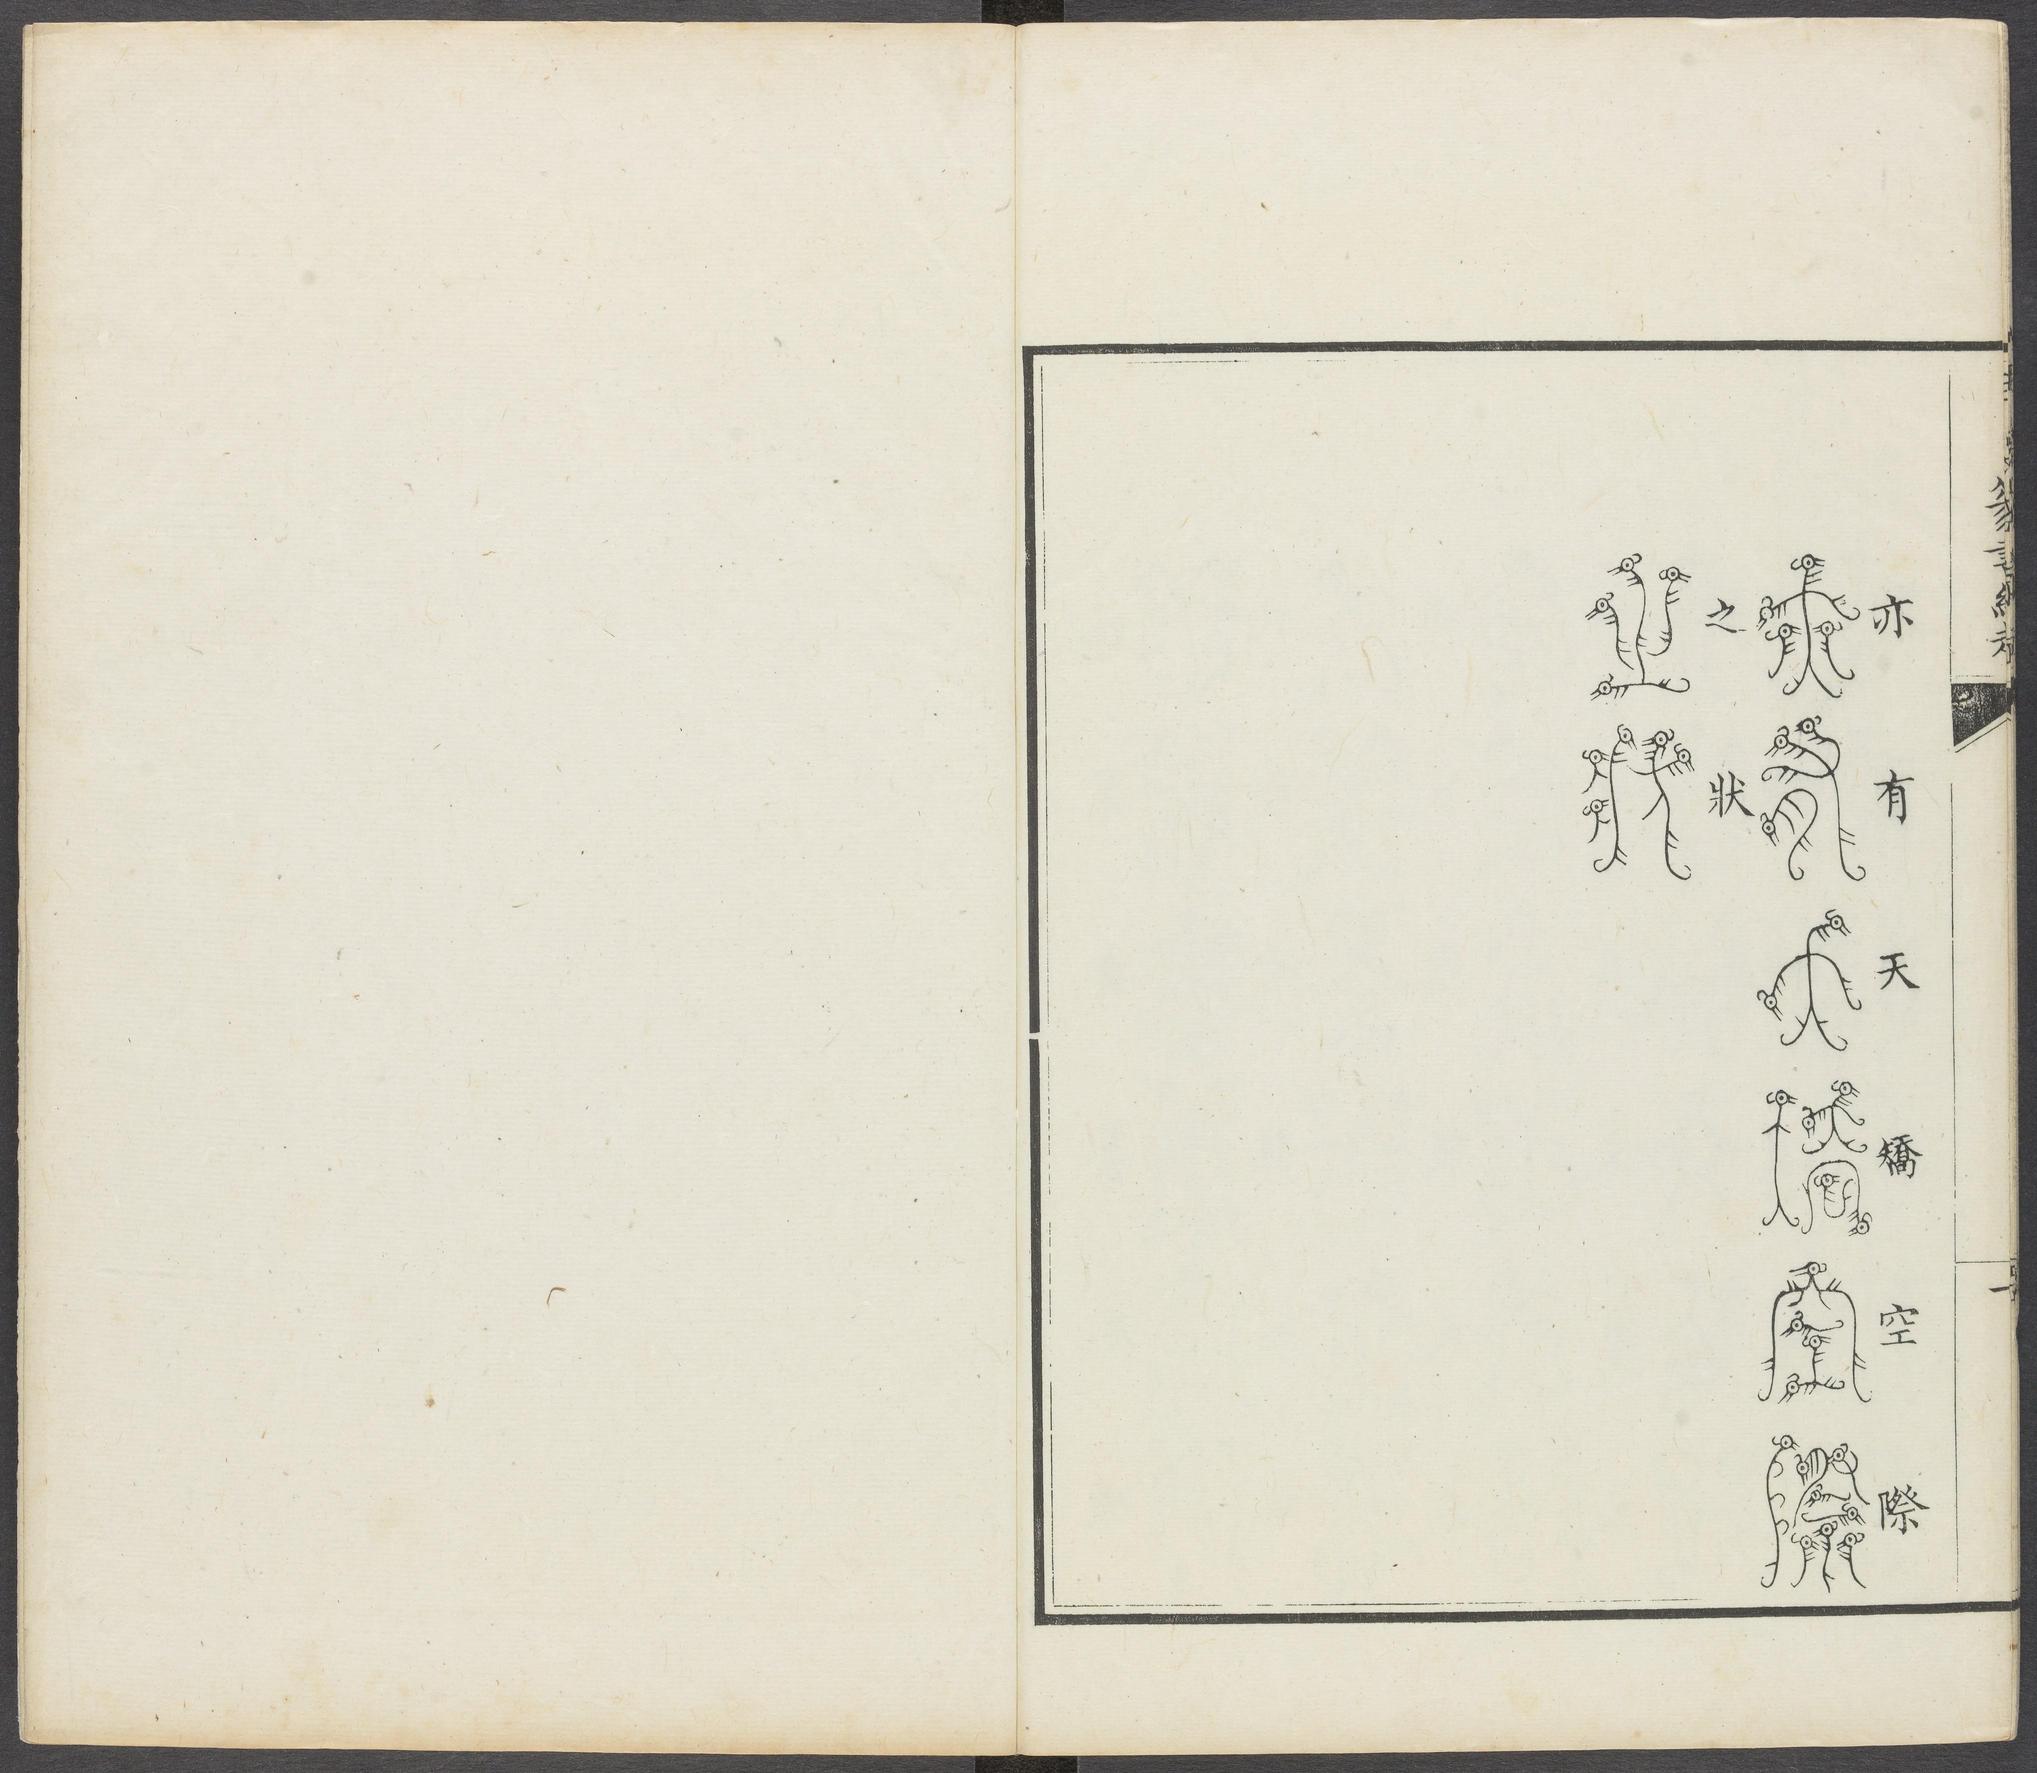 亦有天矯空際
之狀